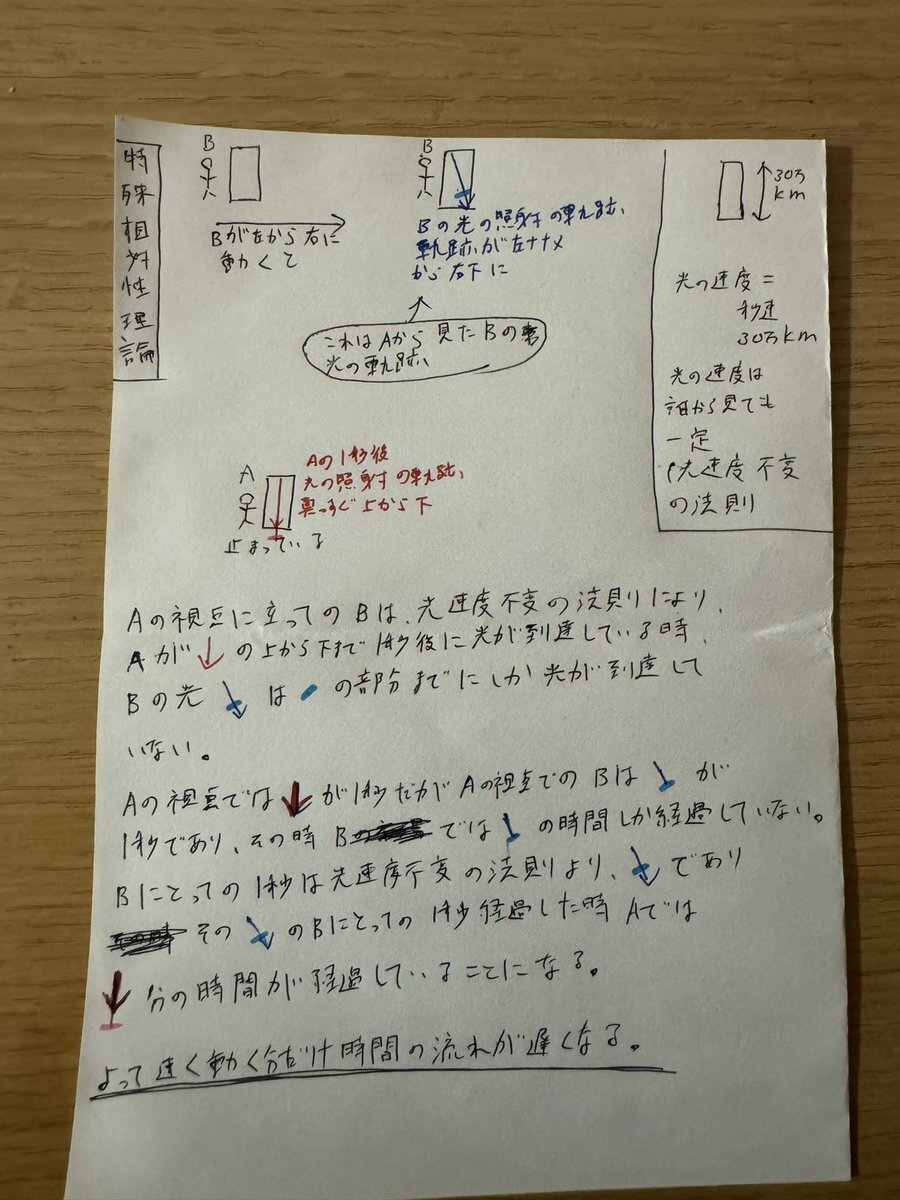 特殊相対性理論
B
Bが左から右に
動くて
B
Bの光の照射の軌跡、
軌跡が左ナナメ
から右下に
これはAから見たBの
光の軌跡
30万
km
光の速度=
秒速
30万km
光の速度は
誰から見ても
一定
光速度不変
の法則
A
Aの1秒後
光の照射の軌跡、
真っすぐ上から下
止まっている
Aの視点に立ってのBは、光速度不変の法則により、
Aが↓の上から下まで1秒後に光が到達している時、
Bの光↘は の部分までにしか光が到達して
いない。
Aの視点では↓が1秒だがAの視点でのBは↘が
1秒であり、その時Bでは↘の時間しか経過していない。
Bにとっての1秒は光速度不変の法則より、↘であり
その↘のBにとっての1秒経過した時Aでは
↓分の時間が経過していることになる。
よって速く動く分だけ時間の流れが遅くなる。